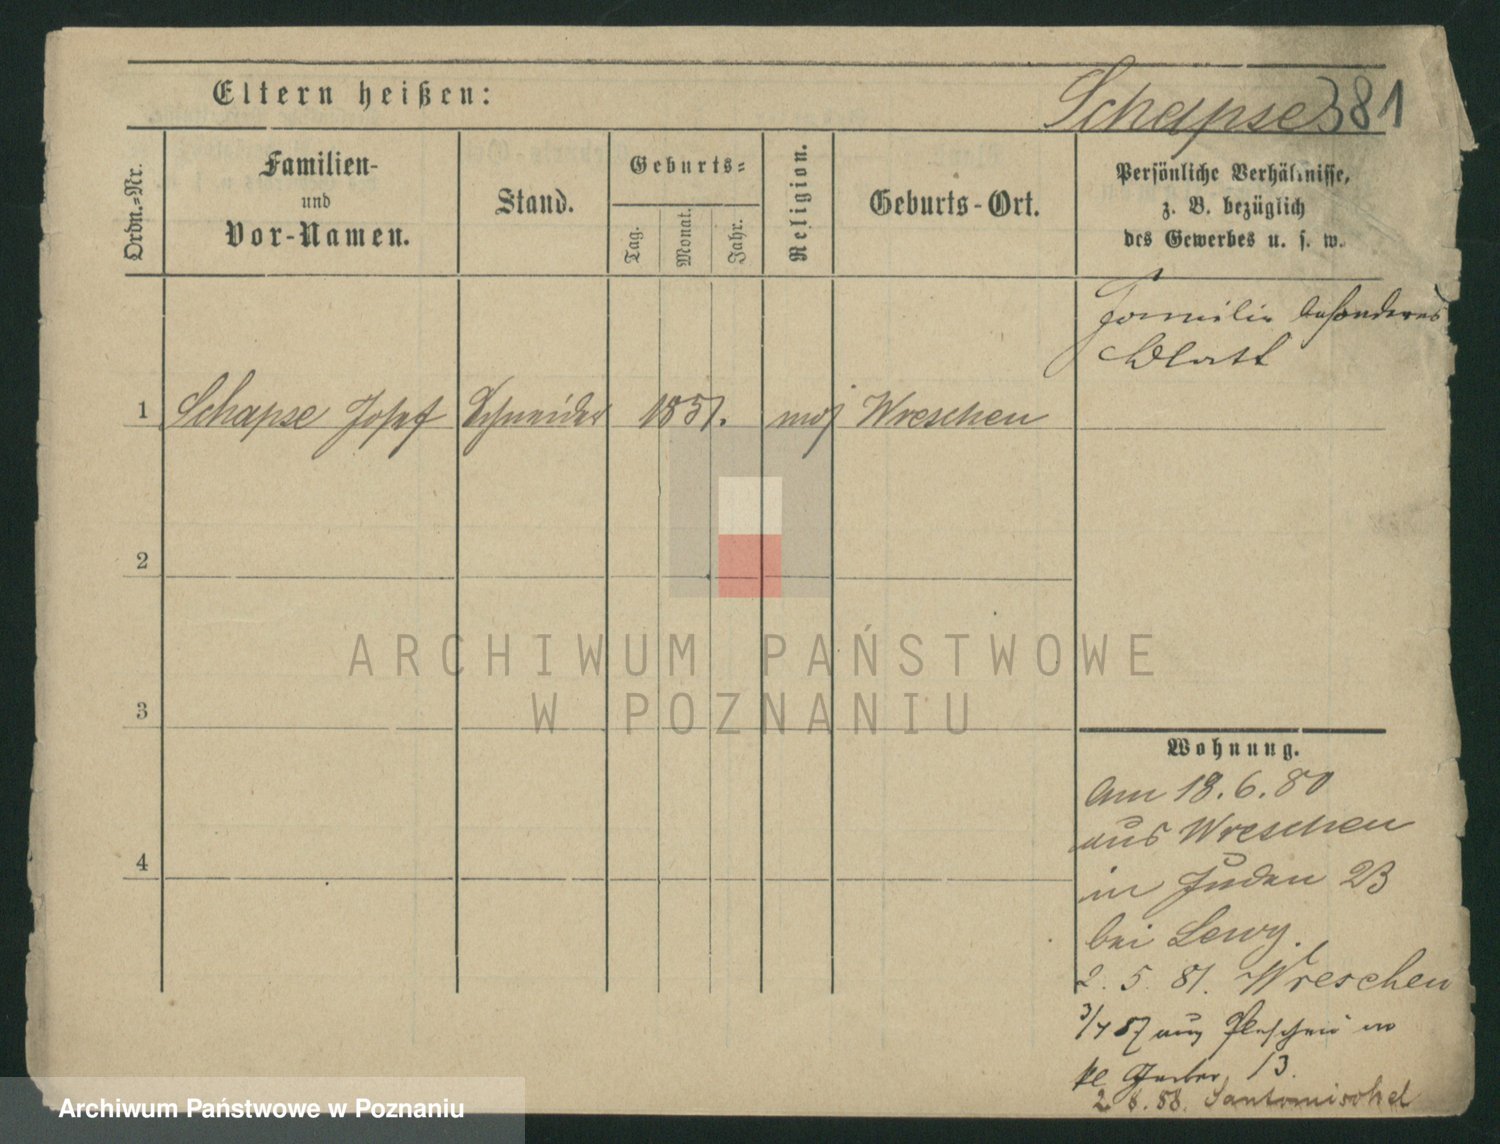 Eltern heißen:
Schapse 381
Ordn.-Nr.
Familien-
und
Vor-Namen.
Stand.
Geburts-
Tag.
Monat.
Jahr.
Religion.
Geburts-Ort.
Persönliche Verhältnisse,
z. B. bezüglich
des Gewerbes u. s. w.
Familie besonderes
Blatt
1 Schapse Josef Schneider 1857. mos Wreschen
2
3
4
Wohnung.
Am 18.6.80
aus Wreschen
in Juden 23
bei Lewy.
2. 5. 81. Wreschen
3/4 87 aus Pleschen in
kl Gerber 13.
2.6.88. Santomischel
ARCHIWUM PAŃSTWOWE
W POZNANIU
Archiwum Państwowe w Poznaniu